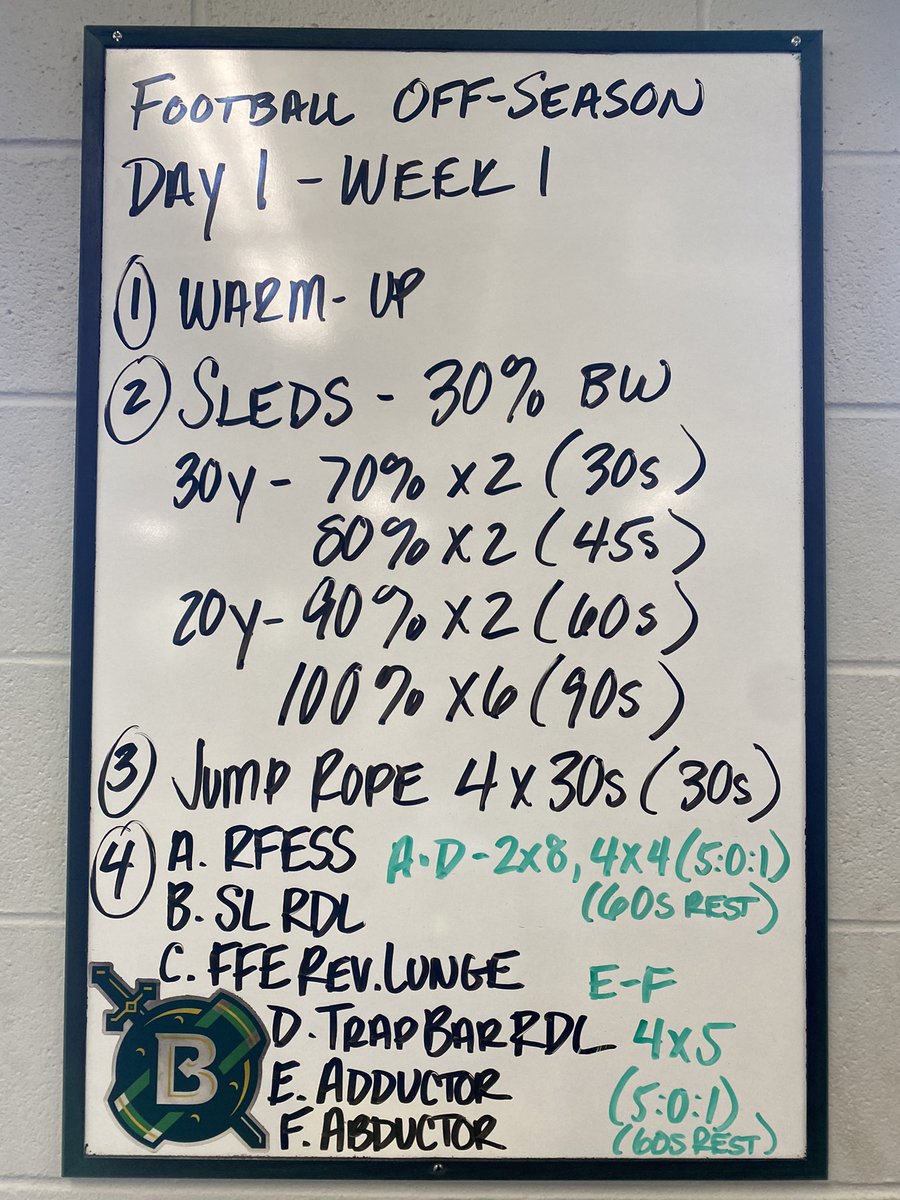 FOOTBALL OFF-SEASON
DAY 1 - WEEK 1
1 WARM-UP
2 SLEDS - 30% BW
30y - 70% x 2 (30s)
80% x 2 (45s)
20y - 90% x 2 (60s)
100% x 6 (90s)
3 JUMP ROPE 4 x 30s (30s)
4 A. RFESS A-D - 2x8, 4x4 (5:0:1)
(60s REST)
B. SL RDL
C. FFE REV. LUNGE
E-F
D. TRAP BAR RDL 4x5
E. ADDUCTOR (5:0:1)
F. ABDUCTOR (60s REST)
B